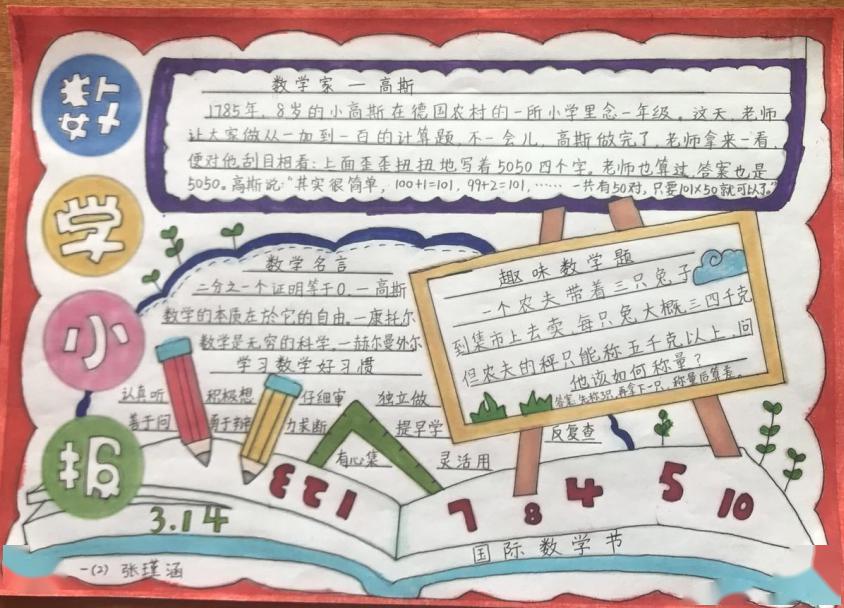 数
学
小
报
数学家一高斯
1785年，8岁的小高斯在德国农村的一所小学里念一年级。这天，老师
让大家做从一加到一百的计算题，不一会儿，高斯做完了，老师拿来一看，
便对他刮目相看：上面歪歪扭扭地写着5050四个字。老师也算过，答案也是
5050。高斯说：“其实很简单，100+1=101，99+2=101，……一共有50对，只要101×50就可以了。”
数学名言
二分之一个证明等于0。一高斯
数学的本质在於它的自由。一康托尔
数学是无穷的科学。一赫尔曼外尔
学习数学好习惯
认真听 积极想 仔细审 独立做
善于问 勇于辩 力求断 提早学 反复查
有心集 灵活用
趣味数学题
一个农夫带着三只兔子
到集市上去卖，每只兔大概三四千克
但农夫的秤只能称五千克以上，问
他该如何称量？
答案：先称3只，再拿下一只，称量后算差。
1 2 3
3.14
7 8 4 5 10
国际数学节
一(2) 张瑾涵